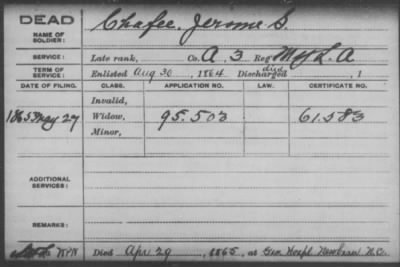 DEAD
NAME OF SOLDIER:
Chafee, Jerome S.
SERVICE:
Late rank, Co. A, 3 Reg NY L. A
TERM OF SERVICE:
Enlisted Aug 30, 1864 Discharged died, 1
DATE OF FILING. CLASS. APPLICATION NO. LAW. CERTIFICATE NO.
Invalid,
1865 May 27 Widow, 95.503 61.583
Minor,
ADDITIONAL SERVICES:
REMARKS:
Died Apr 29, 1865, at Gen Hospl Newbern N.C.